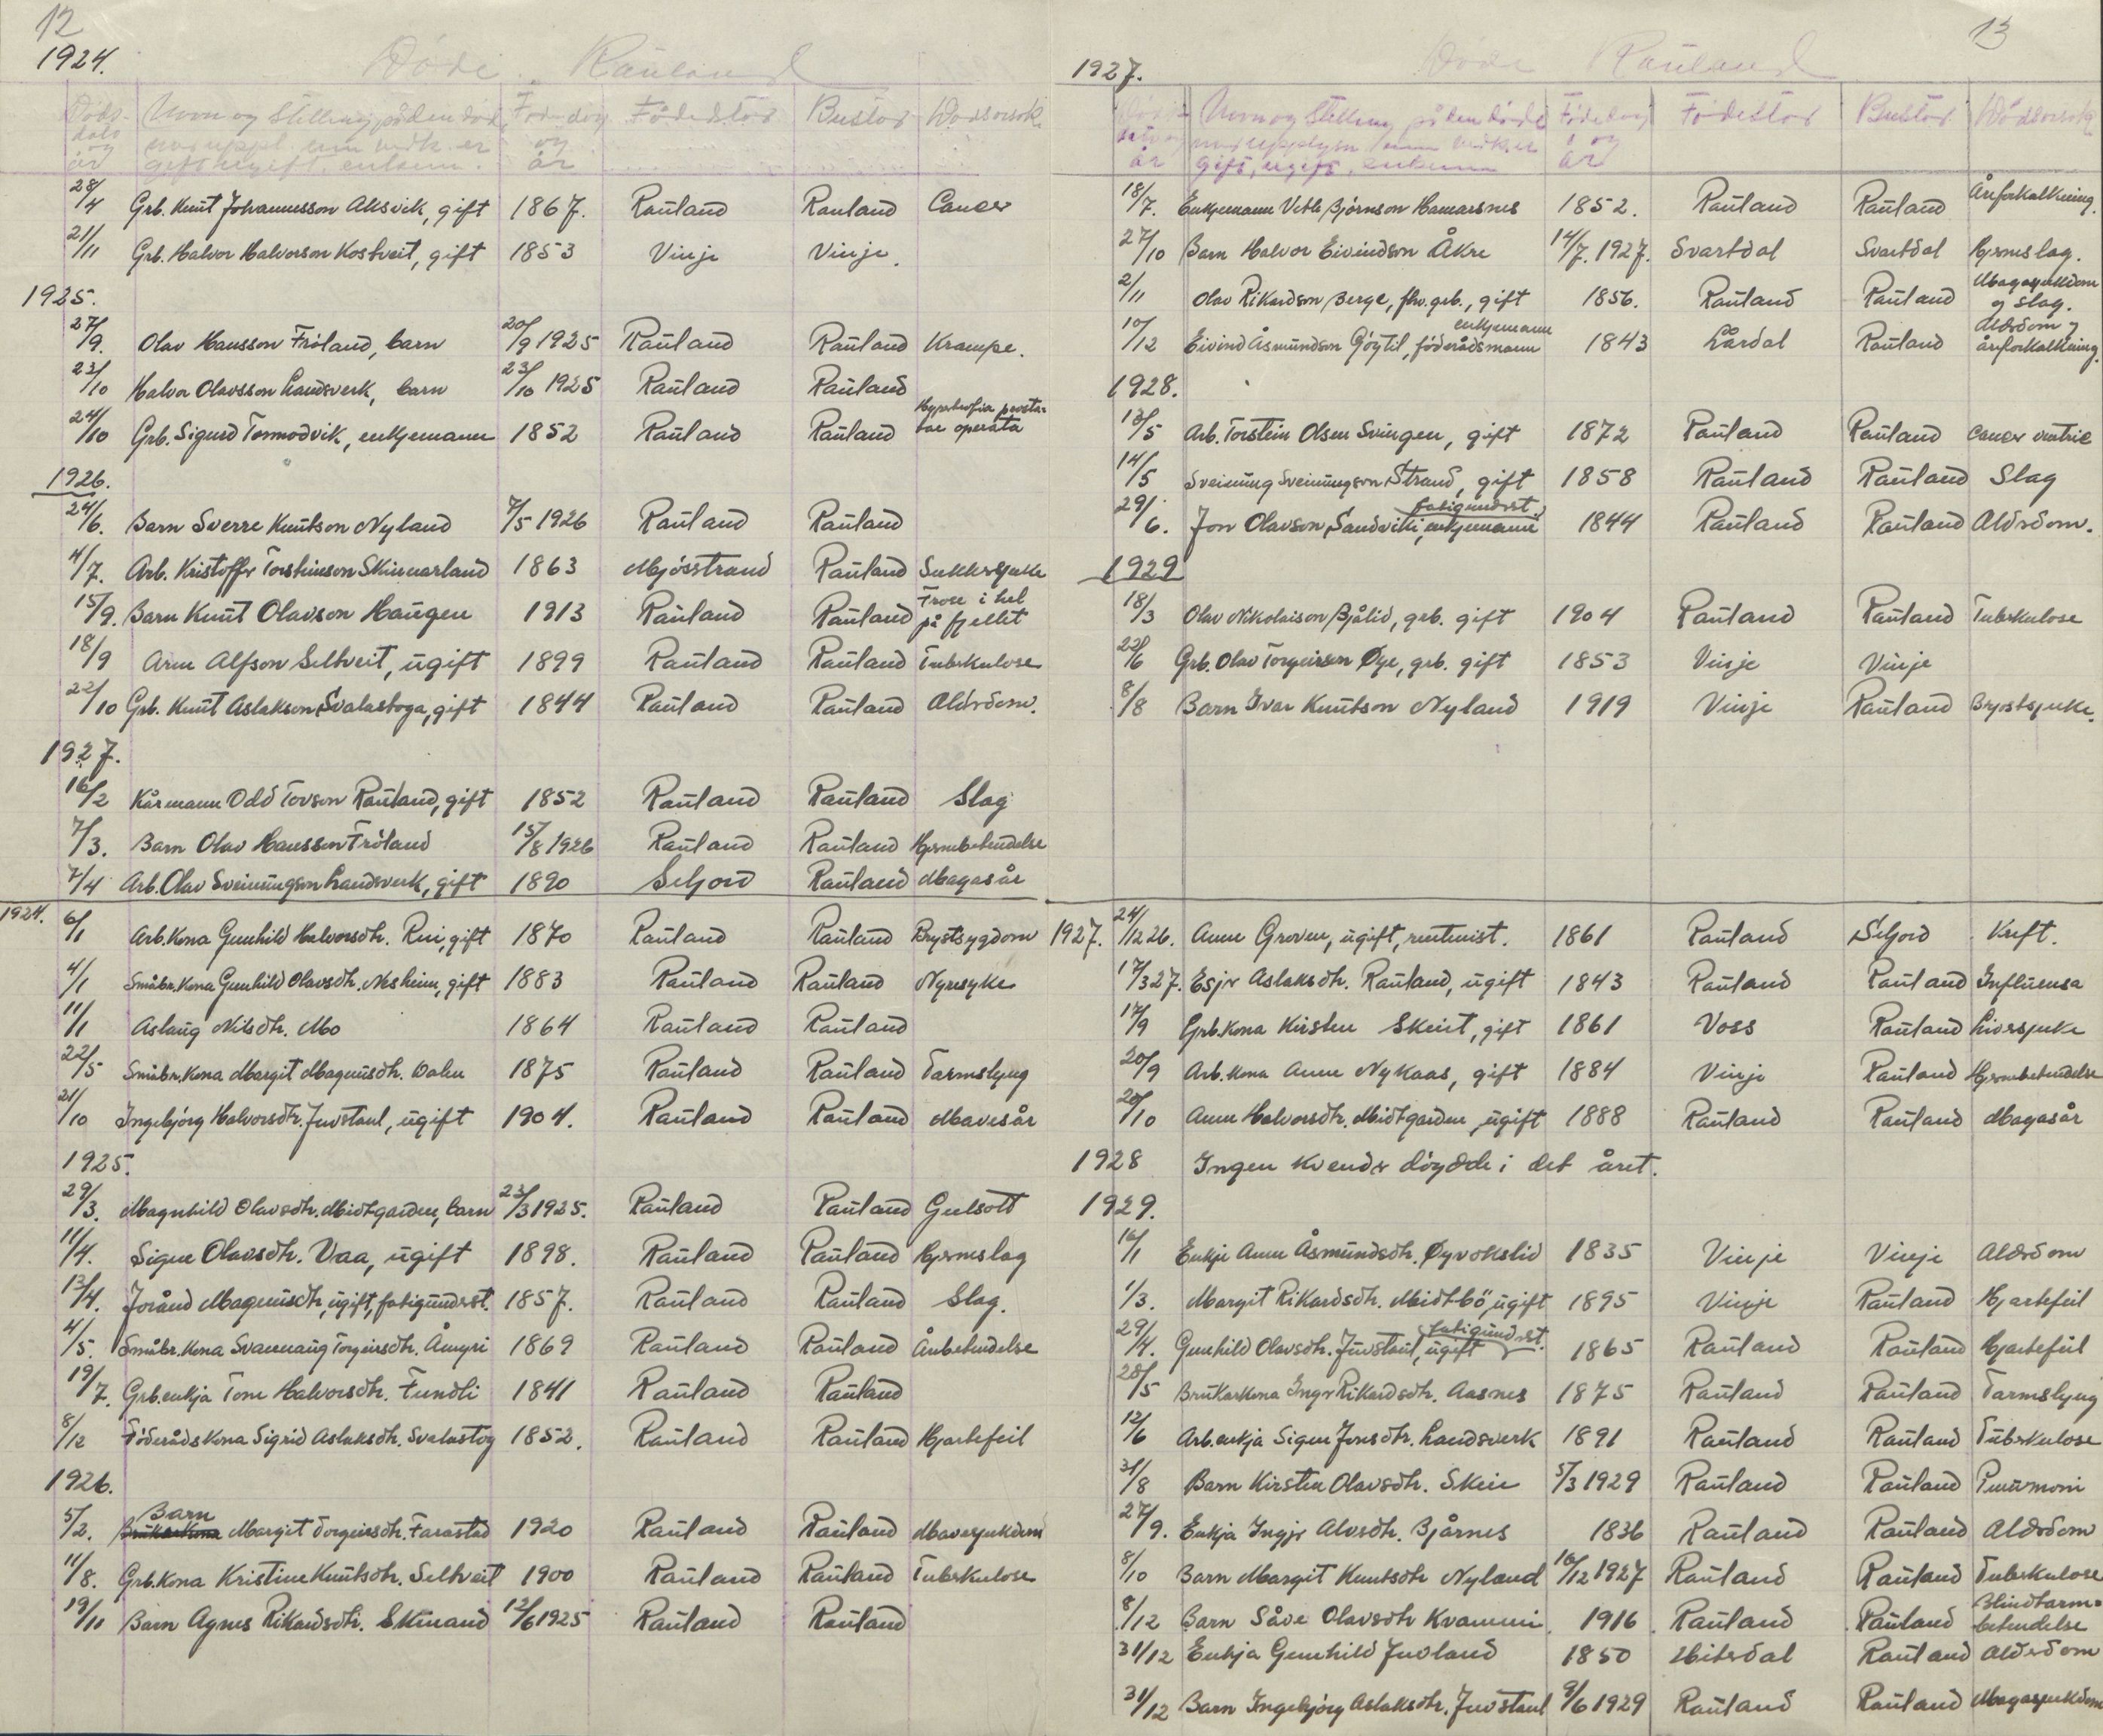 12
1924.
Døde Rauland
Døds-
dato
og
år
Navn og Stilling på den døde
gift ugift, enkem.
Føde dag
og
år
Fødestad
Bustad
Dødsorsak
28/4 Grb. Knut Johannesson Aksvik, gift 1867. Rauland Rauland Cancer
21/11 Grb. Halvor Halvorson Kostveit, gift 1853 Vinje Vinje.
1925.
27/9. Olav Hansson Fröland, barn 20/9 1925 Rauland Rauland Krampe.
23/10 Halvor Olavsson Landsverk, barn 23/10 1925 Rauland Rauland
24/10 Grb. Sigurd Tormodvik, enkjemann 1852 Rauland Rauland Hypertrofia prosta-
tae operata
1926.
24/6. Barn Sverre Knutson Nyland 7/5 1926 Rauland Rauland
4/7. Arb. Kristoffer Torsteinson Skinnarland 1863 Mjösstrand Rauland Sukkersjuke
15/9. Barn Knut Olavson Haugen 1913 Rauland Rauland Frose i hel
på fjellet
18/9 Arne Alfson Seltveit, ugift 1899 Rauland Rauland Tuberkulose
22/10 Grb. Knut Aslakson Svalastoga, gift 1844 Rauland Rauland Alderdom.
1927.
16/2 Kårmann Odd Tovson Rauland, gift 1852 Rauland Rauland Slag
7/3. Barn Olav Hansson Fröland 15/8 1926 Rauland Rauland Hjernebetendelse
7/4 Arb. Olav Sveinungson Landsverk, gift 1890 Seljord Rauland Magasår
1924. 6/1 Arb. Kona Gunhild Halvorsdtr. Rui, gift 1870 Rauland Rauland Brystsygdom
4/1 Småbr. Kona Gunhild Olavsdtr. Nesheim, gift 1883 Rauland Rauland Nyresyke
11/1 Aslaug Nilsdtr. Mo 1864 Rauland Rauland
22/5 Småbr. Kona Margit Magnusdtr. Dalen 1875 Rauland Rauland Tarmslyng
21/10 Ingebjörg Halvorsdtr. Juvstaul, ugift 1904. Rauland Rauland Mavesår
1925.
29/3. Magnhild Olavsdtr. Midtgarden, barn 23/3 1925. Rauland Rauland Gulsott
11/4. Signe Olavsdtr. Vaa, ugift 1898. Rauland Rauland Hjerneslag
13/4. Joránd Magnusdtr, ugift, fatigunderst. 1857. Rauland Rauland Slag.
4/5. Småbr. Kona Svanaug Torgeirsdtr. Åmyri 1869 Rauland Rauland Årebetendelse
19/7. Grb. enkja Tone Halvorsdtr. Fundli 1841 Rauland Rauland
8/12 Föderådskona Sigrid Aslaksdtr. Svalastog 1852. Rauland Rauland Hjartefeil
1926.
5/2. Barn Margit Torgeirsdtr. Farastad 1920 Rauland Rauland Mavesjukdom
11/8. Grb. Kona Kristine Knutsdtr. Seltveit 1900 Rauland Rauland Tuberkulose
19/11 Barn Agnes Rikardsdtr. Skinand 12/6 1925 Rauland Rauland
13
1927.
Døde Rauland
år
Navn og Stilling på den døde
gift, ugift, enkemann
Fødedag
og
år
Fødestad
Bustad
Dødsorsak
18/7. Enkjemann Vetle Björnson Hamarsnes 1852. Rauland Rauland Åreforkalkning.
27/10 Barn Halvor Eivindson Åkre 14/7. 1927. Svartdal Svartdal Hjerneslag.
2/11 Olav Rikardson Berge, fhv. grb., gift 1856. Rauland Rauland Magasjukdom
og slag.
10/12 Eivind Åsmundson Göytil, föderådsmann enkjemann 1843 Lårdal Rauland Alderdom og
åreforkalkning.
1928.
13/5 Arb. Torstein Olsen Svingen, gift 1872 Rauland Rauland Cancer ventric
14/5 Sveinung Sveinungson Strand, gift 1858 Rauland Rauland Slag
29/6. Jon Olavson Sandviki, enkjemann fatigunderst. 1844 Rauland Rauland Alderdom.
1929
18/3 Olav Nikolaison Bjålid, grb. gift 1904 Rauland Rauland Tuberkulose
22/6 Grb. Olav Torgeirson Øye, grb. gift 1853 Vinje Vinje
8/8 Barn Ivar Knutson Nyland 1919 Vinje Rauland Brystsjuke.
1927. 24/12 26. Anne Groven, ugift, rentenist. 1861 Rauland Seljord Kreft.
17/3 27. Esjer Aslaksdtr. Rauland, ugift 1843 Rauland Rauland Influensa
17/9 Grb. Kona Kirsten Skeict, gift 1861 Voss Rauland Liversjuke
20/9 Arb. Kona Anne Nykaas, gift 1884 Vinje Rauland Hjernebetendelse
20/10 Anne Halvorsdtr. Midtgarden, ugift 1888 Rauland Rauland Magasår
1928 Ingen Kvender döydde i det året.
1929.
16/1 Enkje Anne Åsmundsdtr. Øyvokslid 1835 Vinje Vinje Alderdom
1/3. Margit Rikardsdtr. Midtbö, ugift 1895 Vinje Rauland Hjartefeil
29/4. Gunhild Olavsdtr. Juvstaul, ugift fatigunderst. 1865 Rauland Rauland Hjartefeil
28/5 Brukarkona Inger Rikardsdtr. Aasnes 1875 Rauland Rauland Tarmslyng
12/6 Arb. enkja Signe Jonsdtr. Landsverk 1891 Rauland Rauland Tuberkulose
31/8 Barn Kirsten Olavsdtr. Skeie 5/3 1929 Rauland Rauland Pneumoni
27/9. Enkja Ingjer Alvsdtr. Bjårnes 1836 Rauland Rauland Alderdom
8/10 Barn Margit Knutsdtr Nyland 16/12 1927 Rauland Rauland Tuberkulose
8/12 Barn Såve Olavsdtr Kvammi. 1916 Rauland Rauland Blindtarm-
betendelse
31/12 Enkja Gunhild Juvland 1850 Hitterdal Rauland Alderdom
31/12 Barn Ingebjörg Aslaksdtr. Juvstaul 9/6 1929 Rauland Rauland Magasjukdom